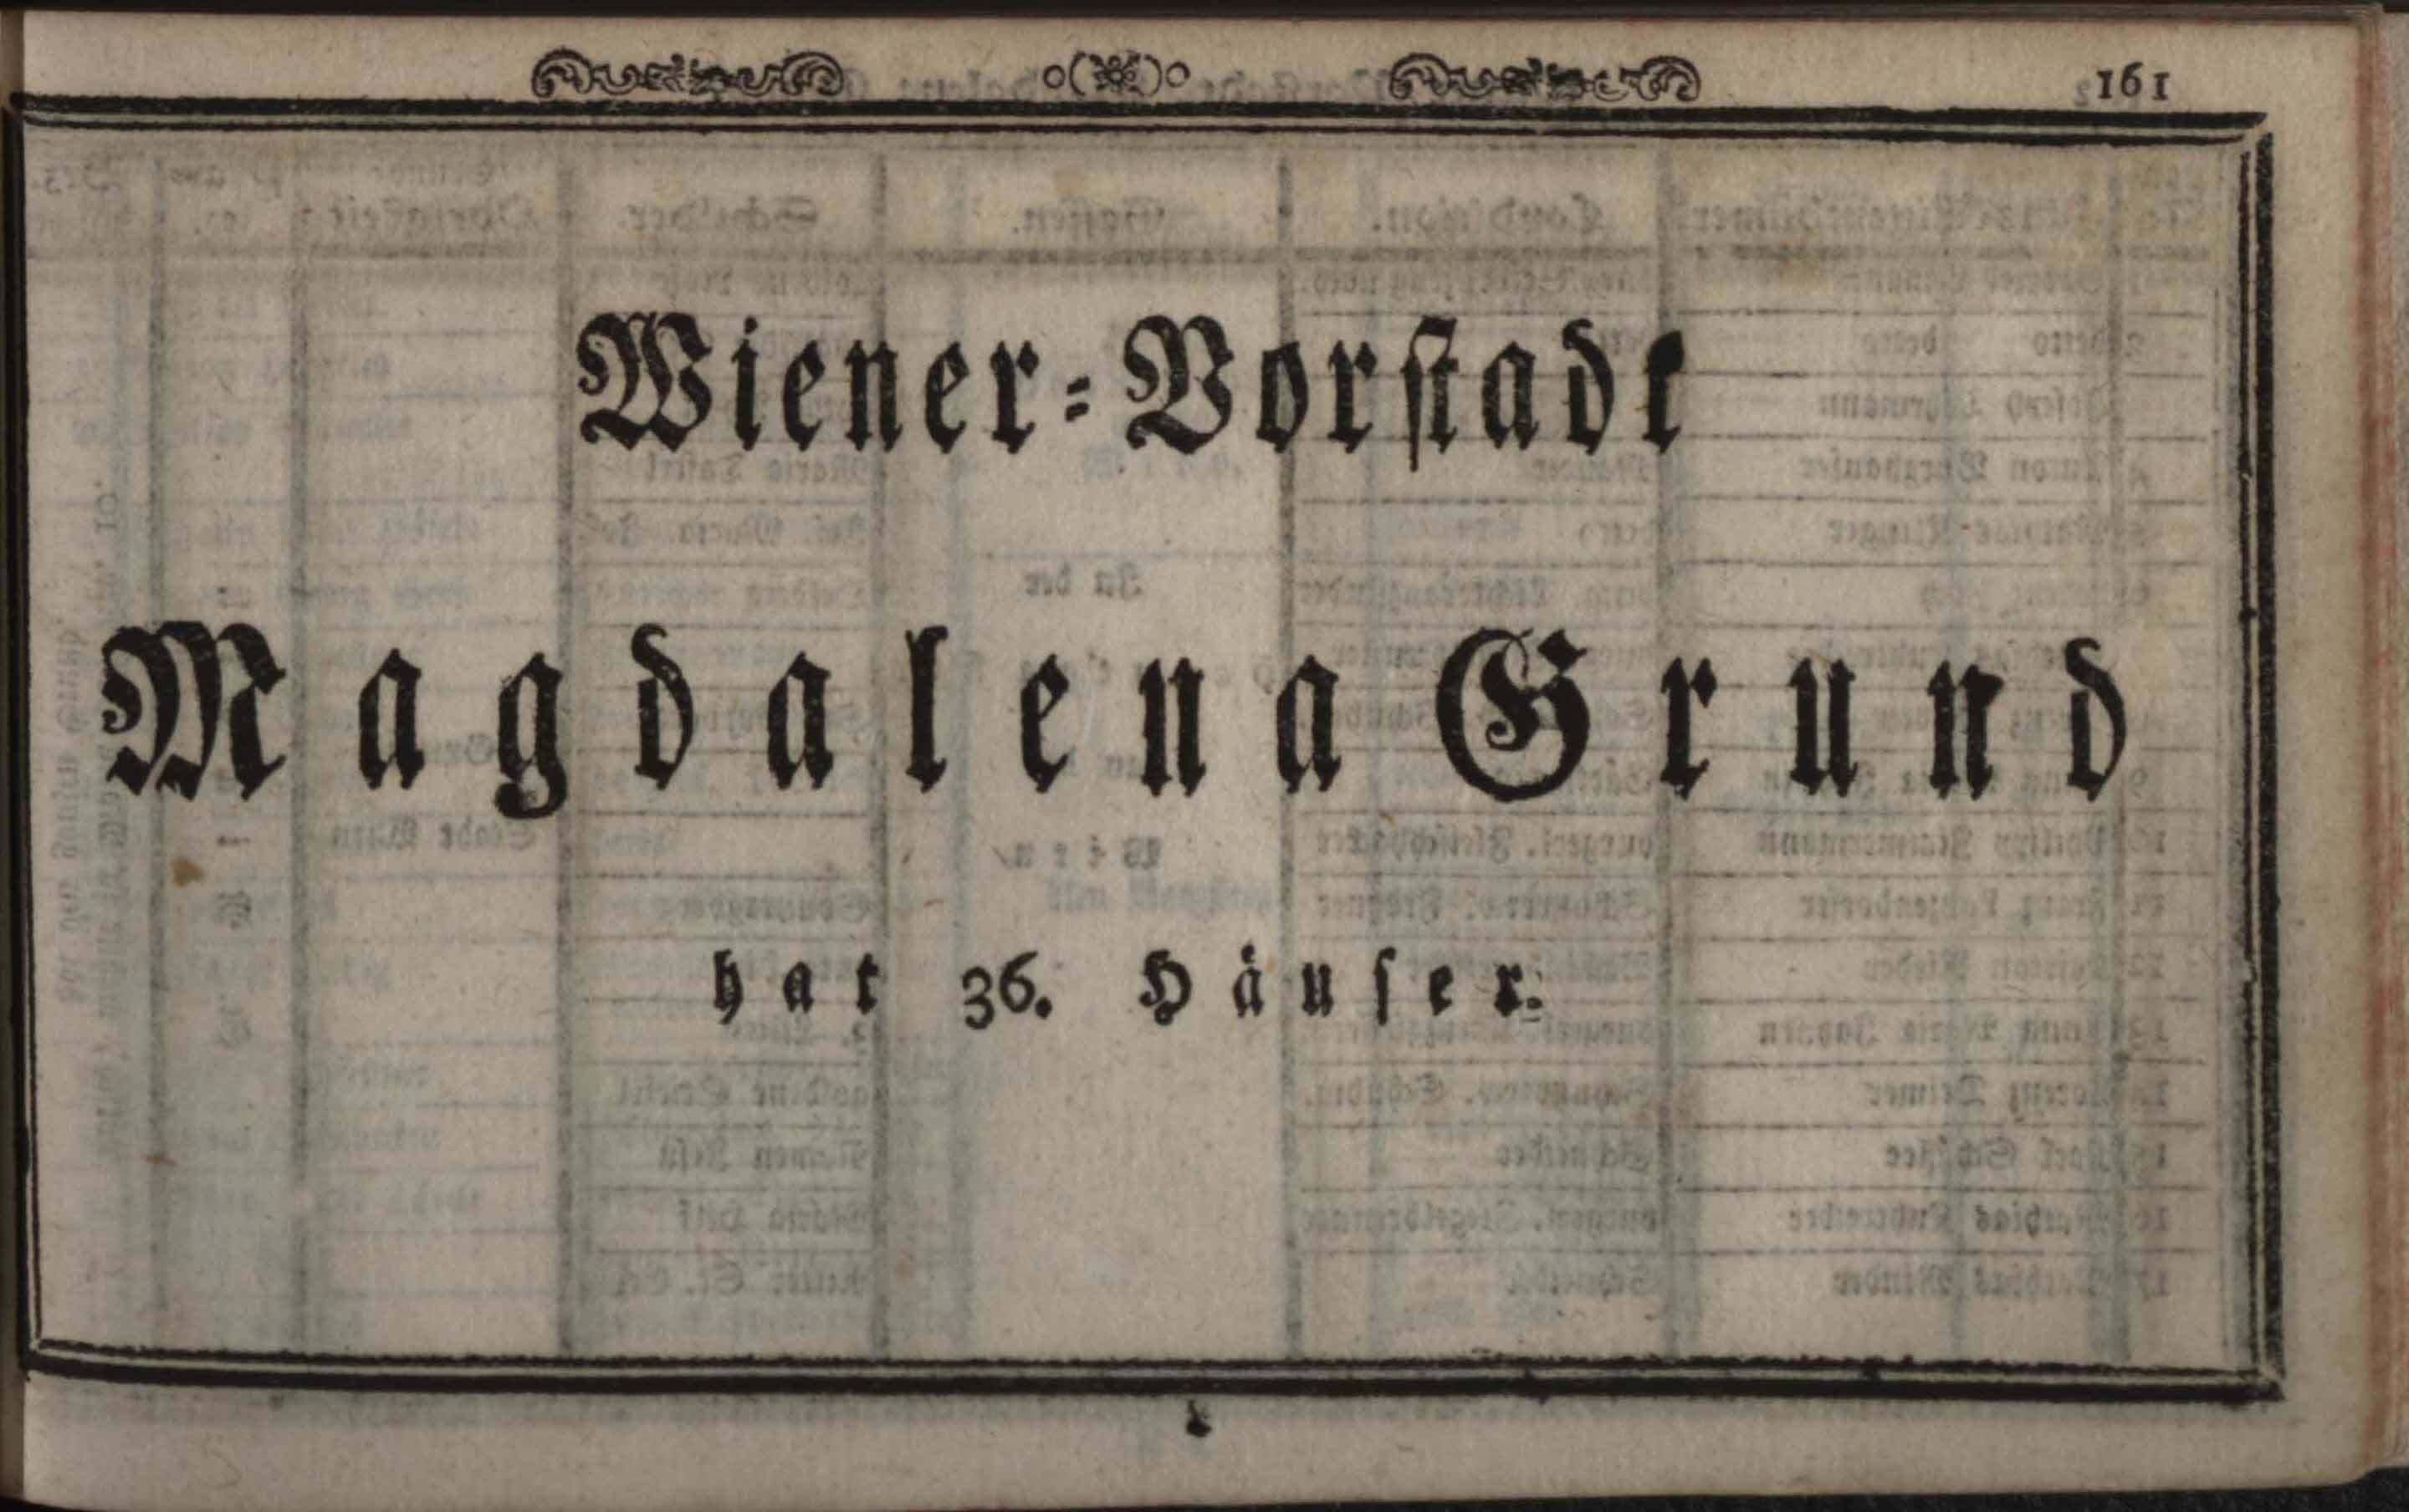 161
Wiener-Vorstadt
Magdalena Grund
hat 36. Häuser.